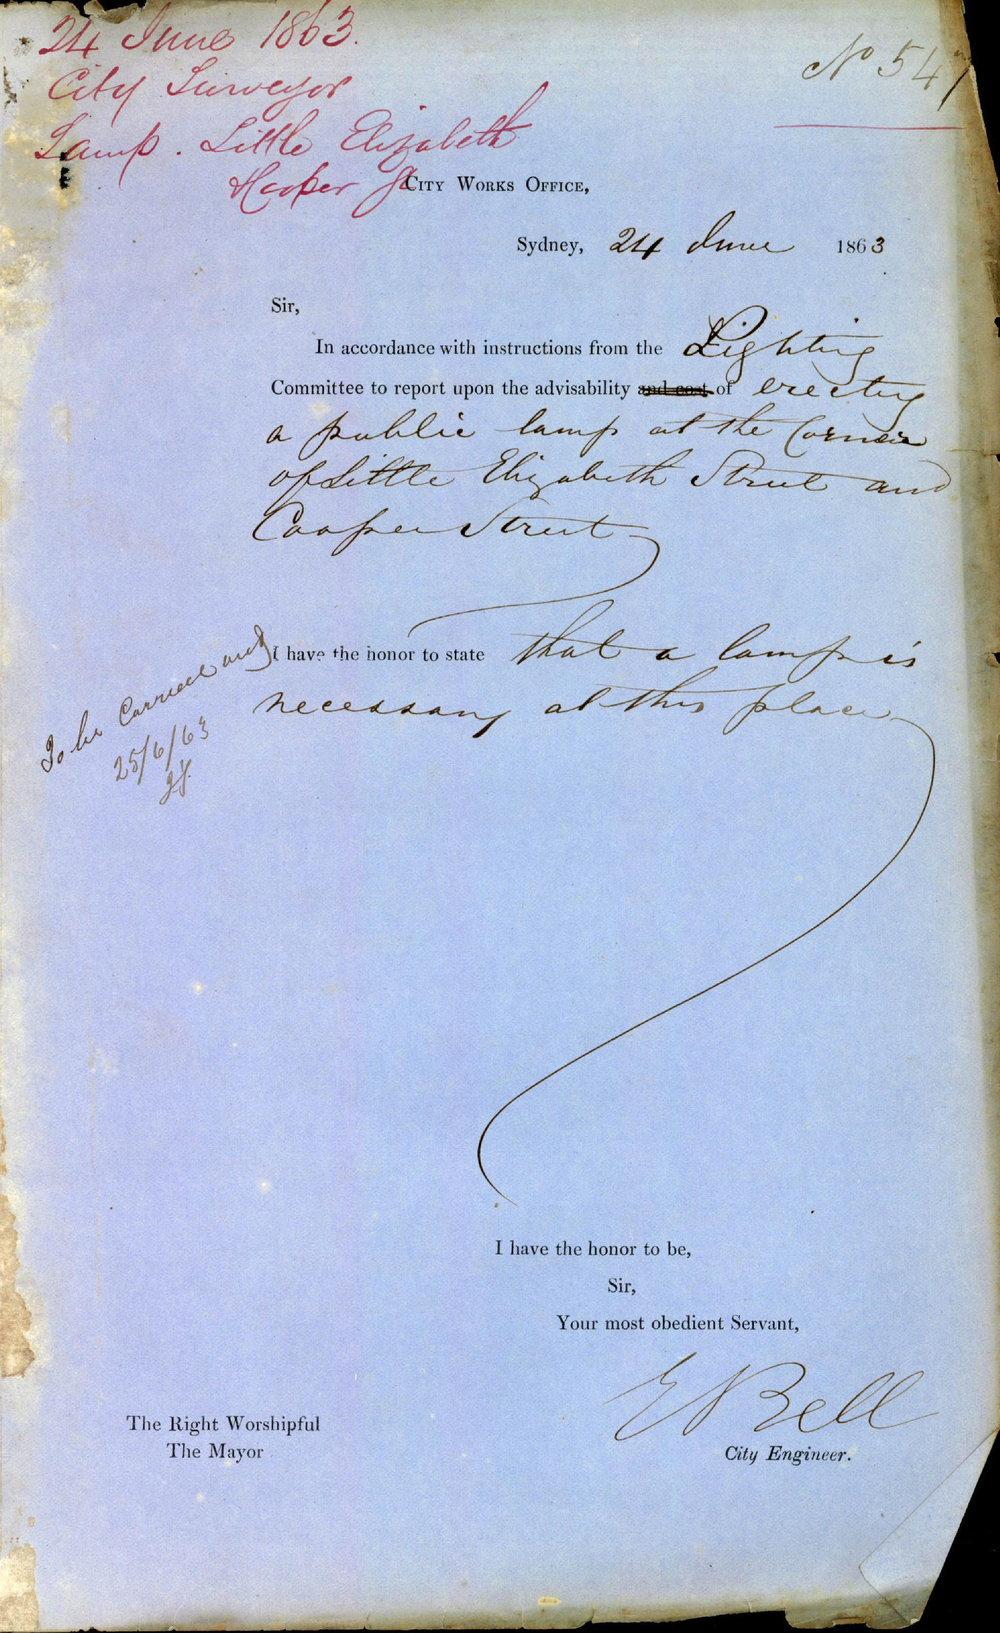 24 June 1863.
City Surveyor
Lamp. Little Elizabeth
Hooper St
No 547
City Works Office,
Sydney, 24 June 1863
Sir,
In accordance with instructions from the Lighting
Committee to report upon the advisability and cost of erecting
a public lamp at the Corner
of Little Elizabeth Street and
Cooper Street
I have the honor to state that a lamp is
necessary at this place
To be Carried out
25/6/63
I have the honor to be,
Sir,
Your most obedient Servant,
E Bell
City Engineer.
The Right Worshipful
The Mayor